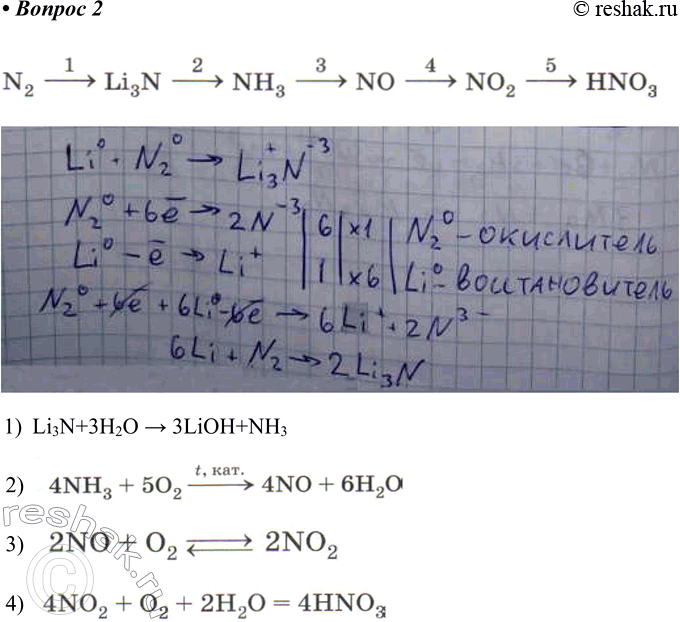 • Вопрос 2 © reshak.ru
N₂ —1→ Li₃N —2→ NH₃ —3→ NO —4→ NO₂ —5→ HNO₃
Li⁰ + N₂⁰ → Li₃⁺N⁻³
N₂⁰ + 6ē → 2N⁻³ | 6 | ×1 | N₂⁰ - окислитель
Li⁰ – ē → Li⁺ | 1 | ×6 | Li⁰ - востановитель
N₂⁰ + 6ē + 6Li⁰ - 6ē → 6Li⁺ + 2N³⁻
6Li + N₂ → 2Li₃N
1) Li₃N+3H₂O → 3LiOH+NH₃
2) 4NH₃ + 5O₂ —t, кат.→ 4NO + 6H₂O
3) 2NO + O₂ ⇄ 2NO₂
4) 4NO₂ + O₂ + 2H₂O = 4HNO₃
reshak.ru
©